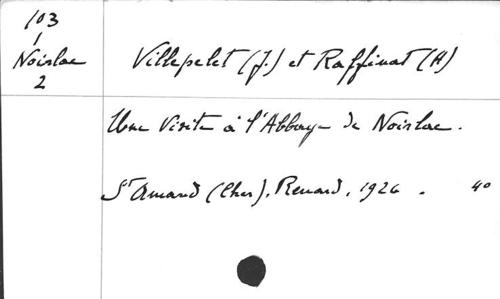 103
/
Noirlac
2
Villepelet (J.) et Raffinat (H)
Une Visite à l'Abbaye de Noirlac.
St Amand (Cher), Renard, 1926. 4o